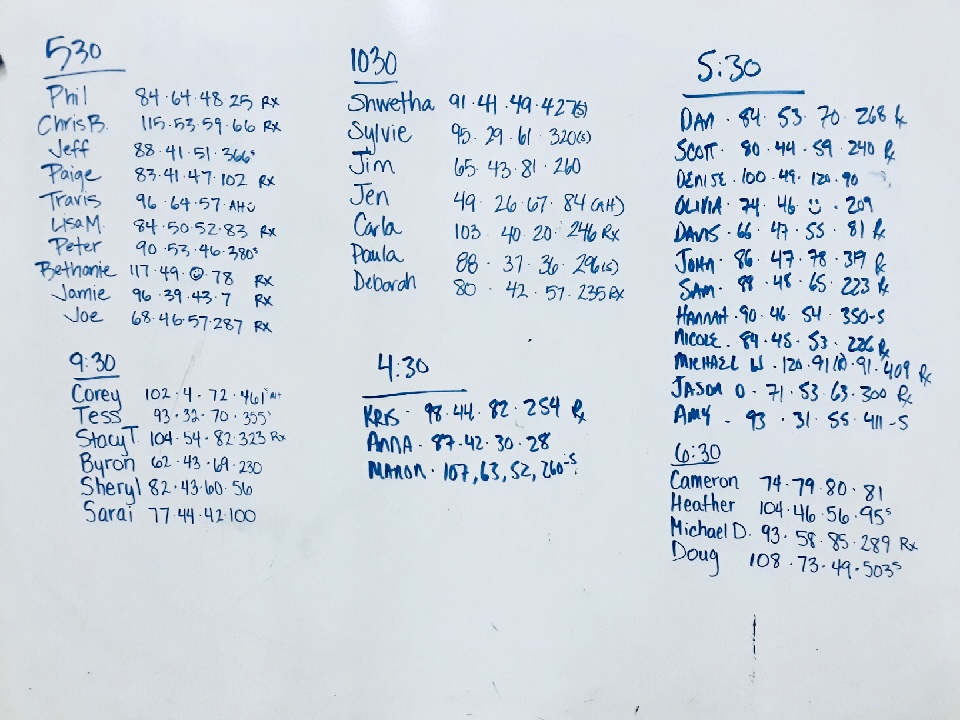 530
Phil 84·64·48·25 Rx
ChrisB. 115·53·59·66 Rx
Jeff 88·41·51·366s
Paige 83·41·47·102 Rx
Travis 96·64·57·AH
LisaM. 84·50·52·83 Rx
Peter 90·53·46·380s
Bethanie 117·49·☺·78 Rx
Jamie 96·39·43·7 Rx
Joe 68·46·57·287 Rx
9:30
Corey 102·4·72·461s AH
Tess 93·32·70·355s
Stacy T. 104·54·82·323 Rx
Byron 62·43·69·230
Sheryl 82·43·60·56
Sarai 77·44·42·100
1030
Shwetha 91·41·49·427(s)
Sylvie 95·29·61·320(s)
Jim 65·43·81·260
Jen 49·26·67·84(AH)
Carla 103·40·20·246 Rx
Paula 88·37·36·296(s)
Deborah 80·42·57·235 Rx
4:30
KRIS· 98·44·82·254 Rx
ANNA· 87·42·30·28
107, 63, 52, 260-S
5:30
DAN· 84·53·70·268 Rx
SCOTT· 80·44·59·240 Rx
DENISE·100·49·120·90
OLIVIA·74·46☺·209
DAVIS·66·47·55·81 Rx
JOHN·86·47·78·319 Rx
SAM·88·48·65·223 Rx
HANNAH·90·46·54·350-S
NICOLE·84·45·53·226 Rx
MICHAEL W·120·91·91·409 Rx
JASON O·71·53·63·300 Rx
AMY·93·31·55·411-S
6:30
Cameron 74·79·80·81
Heather 104·46·56·95s
Michael D. 93·58·85·289 Rx
Doug 108·73·49·503s